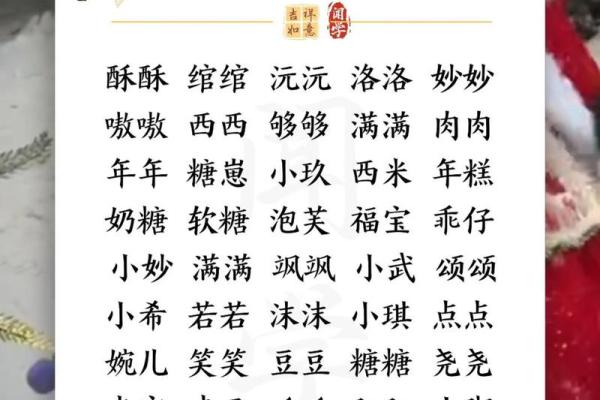 吉祥如意 闻学
酥酥 绾绾 沅沅 洛洛 妙妙
嗷嗷 西西 够够 满满 肉肉
年年 糖崽 小玖 西米 年糕
奶糖 软糖 泡芙 福宝 乖仔
小妙 满满 飒飒 小武 颂颂
小希 若若 沫沫 小琪 点点
婉儿 笑笑 豆豆 糖糖 尧尧
闻学